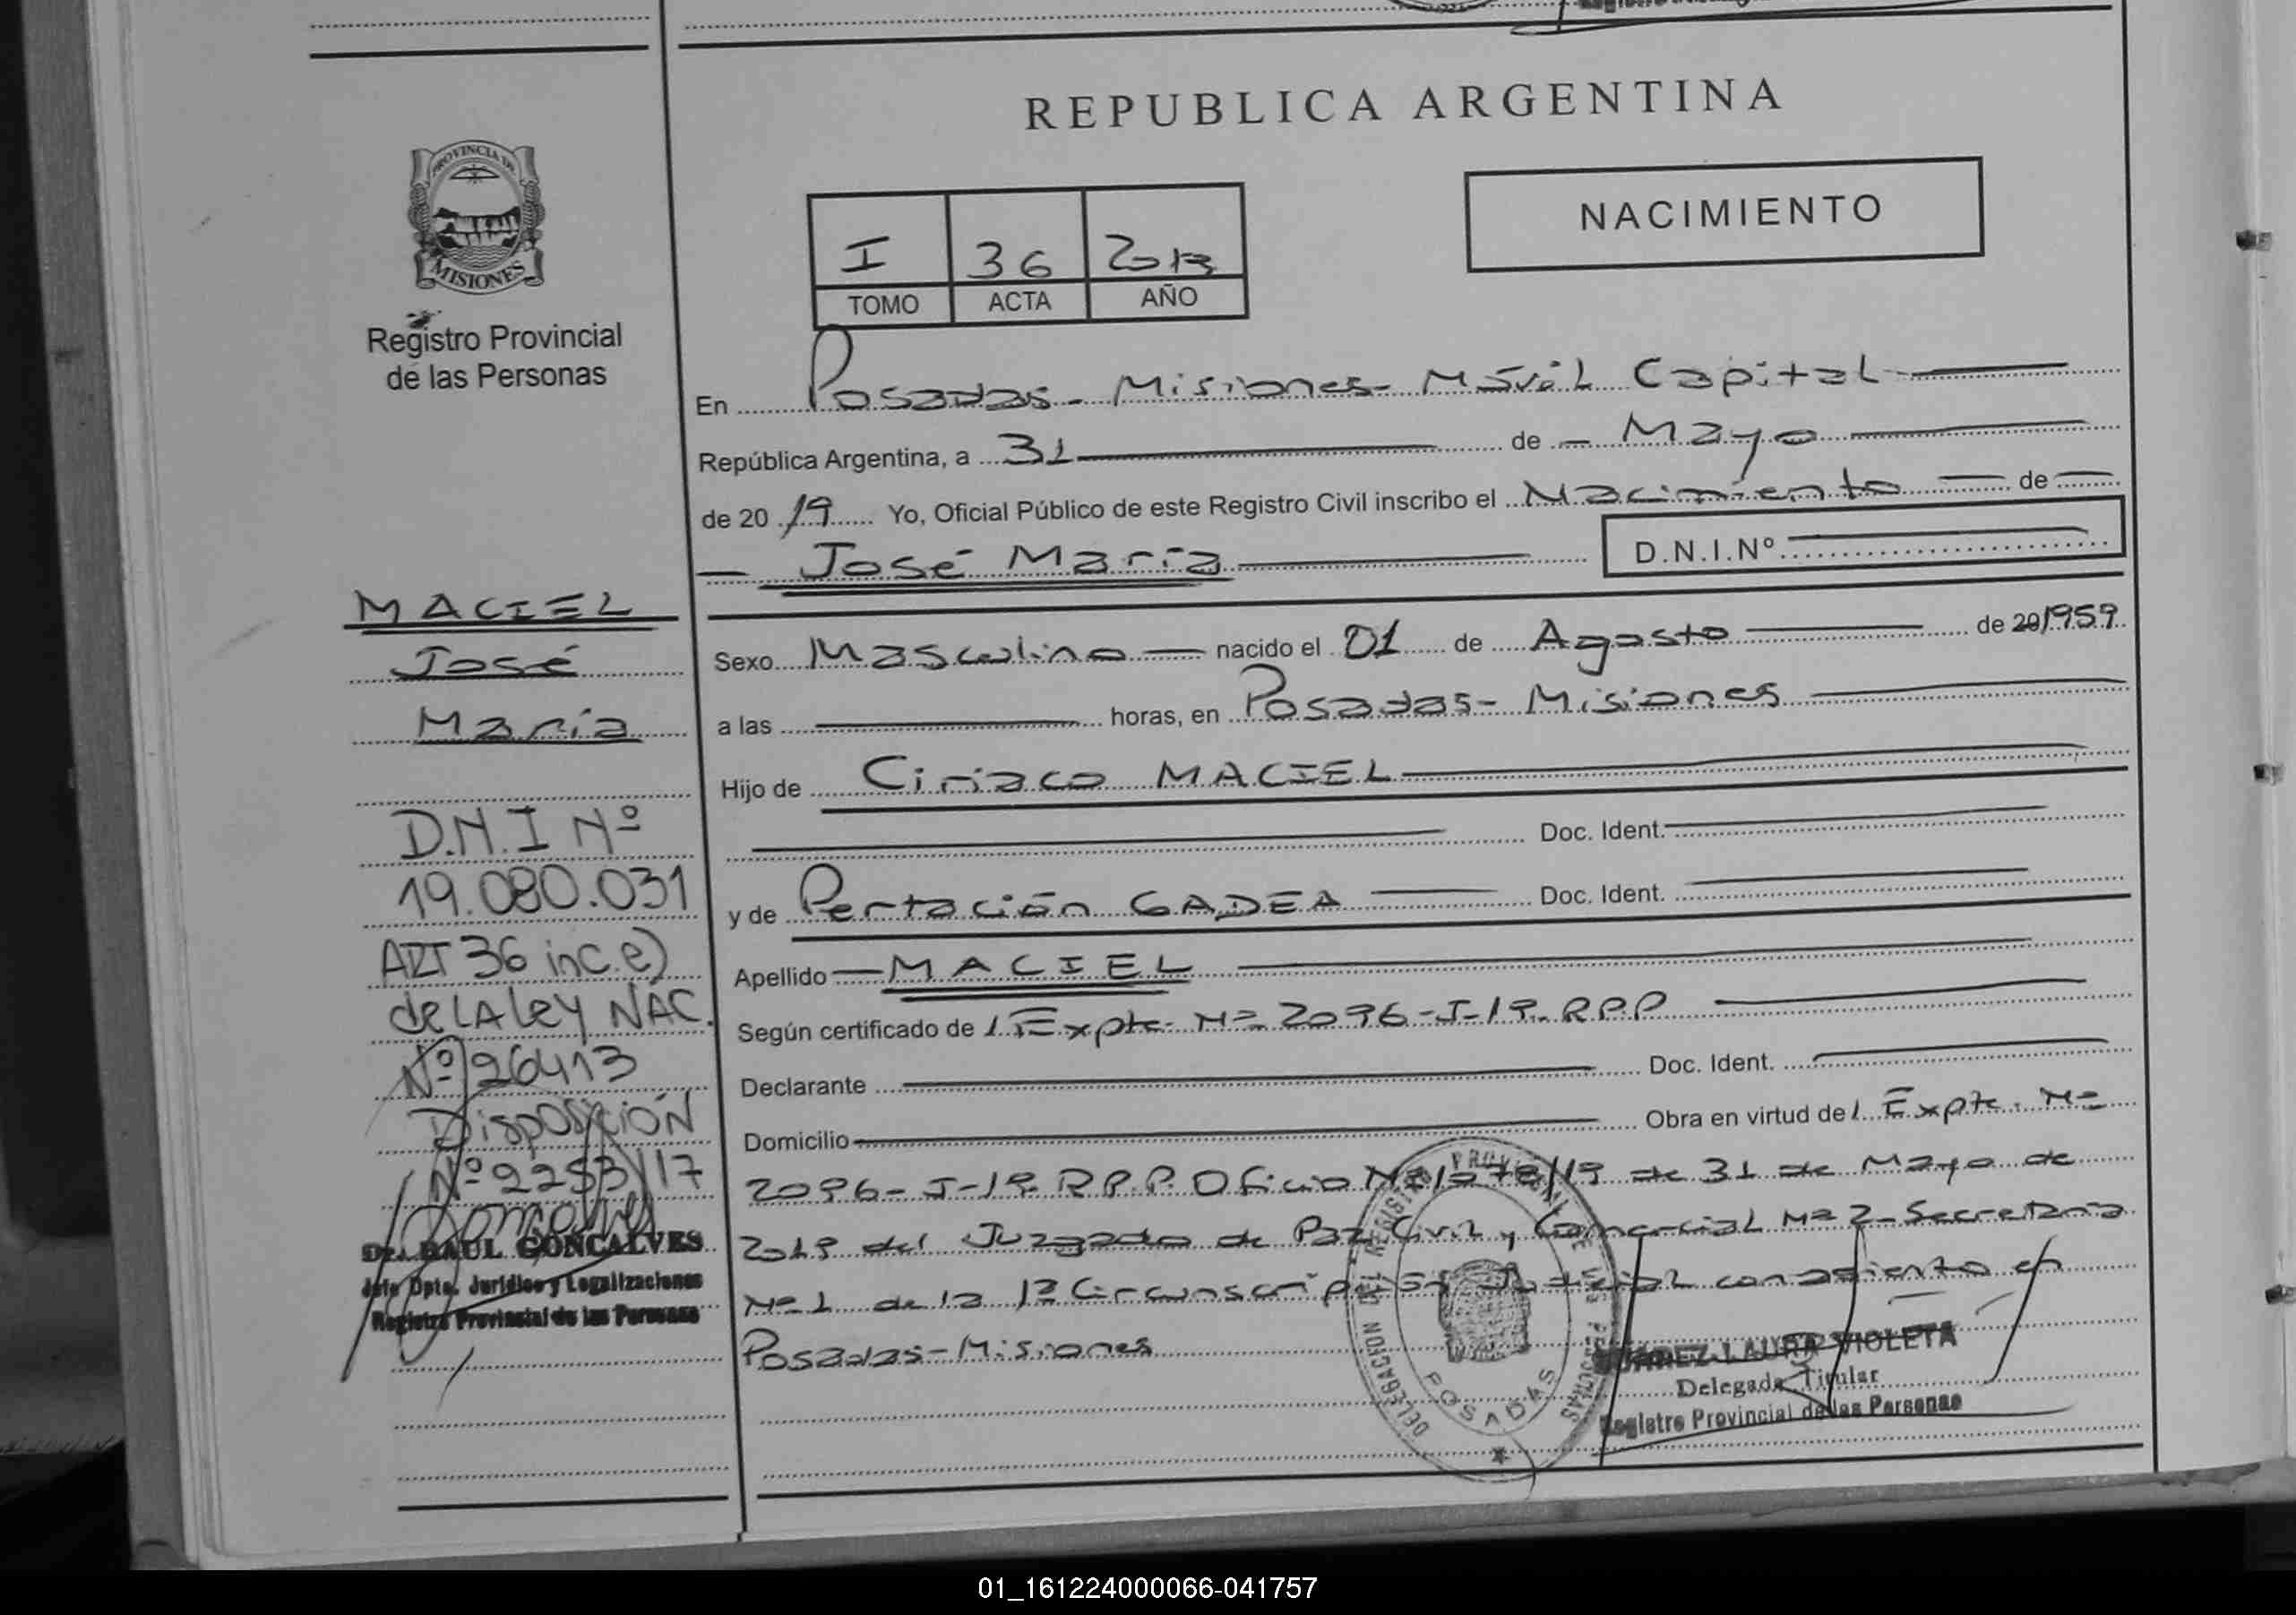 REPUBLICA ARGENTINA
PROVINCIA DE
MISIONES
Registro Provincial
de las Personas
NACIMIENTO
I 36
TOMO ACTA AÑO
En Posadas - Misiones - Móvil Capital
República Argentina, a 31 de Mayo
de 20 19 Yo, Oficial Público de este Registro Civil inscribo el Nacimiento de
José María D.N.I.Nº
MACIEL
José
María
D.N.I Nº
19.080.031
ART 36 inc.e)
de LA Ley NAC.
Nº 26413
Disposición
Nº 2253/17
Dr. RAUL GONCALVES
Jefe Dpto. Jurídico y Legalizaciones
Registro Provincial de las Personas
Sexo Masculino nacido el 01 de Agosto de 20 1959
a las horas, en Posadas - Misiones
Hijo de Ciriaco MACIEL
Doc. Ident.
y de Pertación GADEA Doc. Ident.
Apellido MACIEL
Según certificado de Expte. Nº 2096-J-19-RPP
Declarante Doc. Ident.
Domicilio Obra en virtud de Expte. Nº
2096-J-19 R.P.P. Oficio Nº 1078/19 de 31 de Mayo de
2019 del Juzgado de Paz Civil y Comercial Nº 2 - Secretaria
Nº 1 de la 1ª Circunscripción Judicial con asiento en
Posadas - Misiones
POSADAS
SUAREZ LAURA VIOLETA
Delegada Titular
Registro Provincial de las Personas
01_161224000066-041757